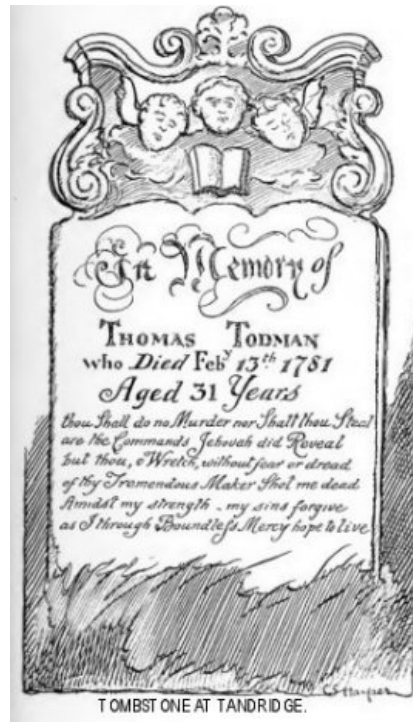 In Memory of
THOMAS TODMAN
who Died Feby 13th 1781
Aged 31 Years
thou Shall do no Murder nor Shalt thou Steal
are the Commands Jehovah did Reveal
but thou, o Wretch, without fear or dread
of thy Tremendous Maker Shot me dead
Amidst my strength - my sins forgive
as I through Boundless Mercy hope to live
C Harper
TOMBSTONE AT TANDRIDGE.